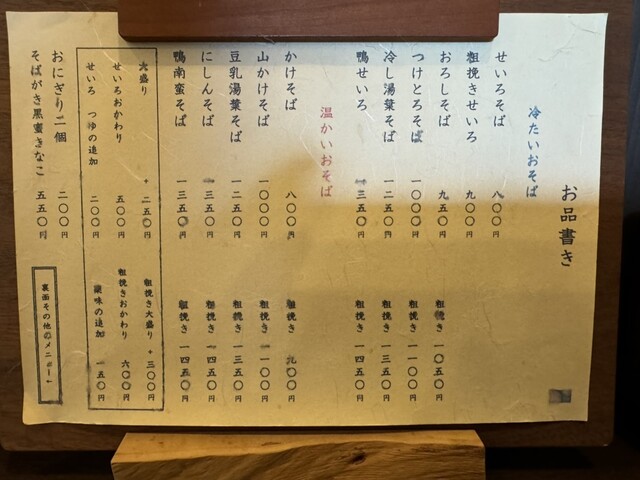 お品書き
冷たいおそば
せいろそば 八〇〇円
粗挽きせいろ 九〇〇円
おろしそば 九五〇円 粗挽き 一〇五〇円
つけとろそば 一〇〇〇円 粗挽き 一一〇〇円
冷し湯葉そば 一二五〇円 粗挽き 一三五〇円
鴨せいろ 一三五〇円 粗挽き 一四五〇円
温かいおそば
かけそば 八〇〇円 粗挽き 九〇〇円
山かけそば 一〇〇〇円 粗挽き 一一〇〇円
豆乳湯葉そば 一二五〇円 粗挽き 一三五〇円
にしんそば 一三五〇円 粗挽き 一四五〇円
鴨南蛮そば 一三五〇円 粗挽き 一四五〇円
大盛り +二五〇円 粗挽き大盛り +三〇〇円
せいろおかわり 五〇〇円 粗挽きおかわり 六〇〇円
せいろ つゆの追加 二〇〇円 薬味の追加 一五〇円
おにぎり二個 二〇〇円
そばがき黒蜜きなこ 五五〇円
裏面その他のメニュー